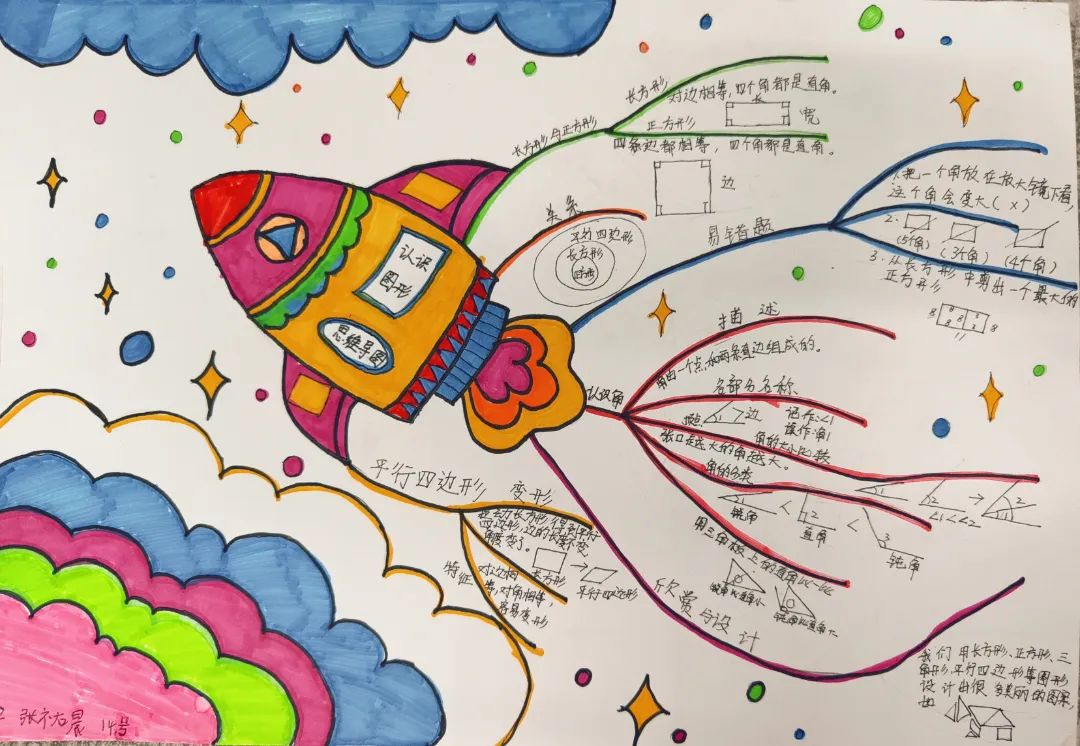 认识
图形
思维导图
长方形与正方形
长方形
对边相等，四个角都是直角。
长
宽
正方形
四条边都相等，四个角都是直角。
边
关系
平行四边形
长方形
易错题
1.把一个角放在放大镜下看，
这个角会变大（×）
2.
(5个角) (3个角) (4个角)
3.从长方形中剪出一个最大的
正方形
8 8 8 8
11
认识角
描述
角由一个点和两条直边组成的。
各部分名称
顶点 1 边
记作:∠1
读作:角1
角的大小比较
张口越大的角越大。
∠1 ∠2 → 2
∠1<∠2
角的分类
锐角 < 直角 < 钝角
用三角板上的直角比一比
锐角比直角小
钝角比直角大
平行四边形
变形
拉动长方形得到平行
四边形,边的长度不变,
角度变了。
长方形 → 平行四边形
特征
对边相
等,对角相等,
容易变形
欣赏与设计
我们用长方形、正方形、三
角形、平行四边形等图形
设计出很多美丽的图案,
如
14号